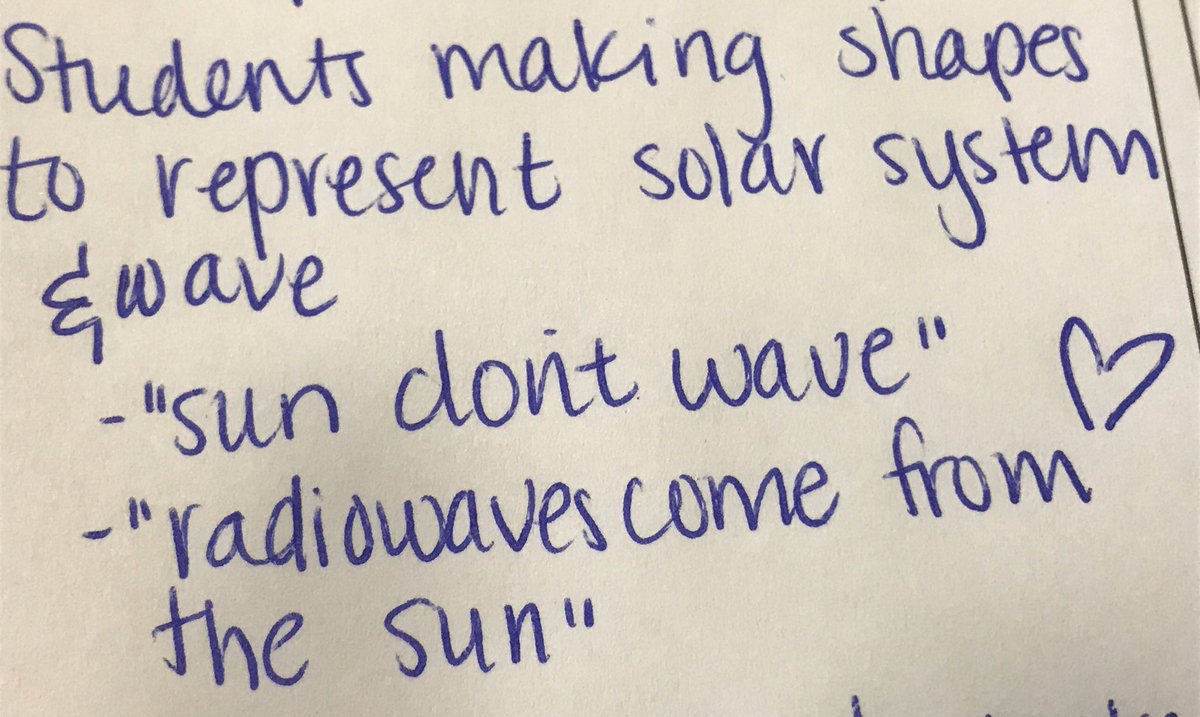 Students making shapes
to represent solar system
& wave
- "sun don't wave"
- "radiowaves come from
the sun"